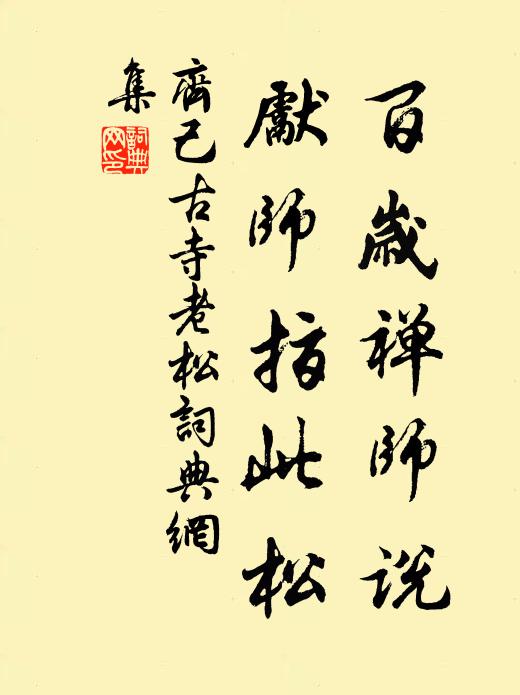 百歲禅師說
獻師指此松
齊己古寺老松詞典網
集
詞典网印